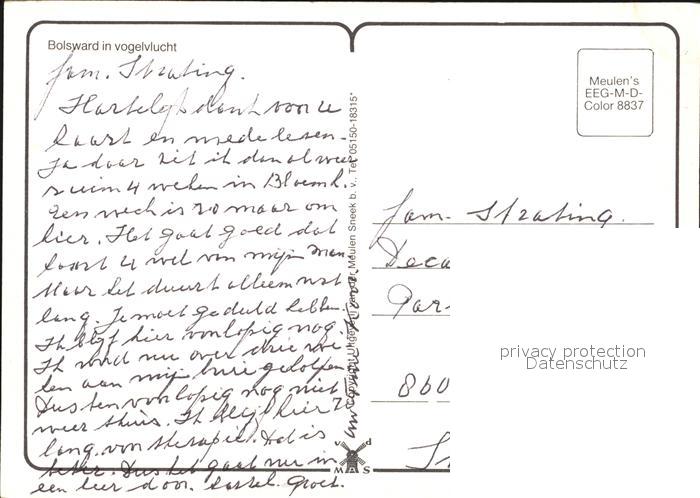 Bolsward in vogelvlucht
fam. Strating.
Hartelijk dank voor de
kaart en mede leven.
Ja daar zit ik dan al weer
ruim 4 weken in Bloemk.
Een week is zo maar om
hier. Het gaat goed dat
hoort U wel van mijn man
Maar het duurt alleen wat
lang. Je moet geduld hebben.
Ik blijf hier voorlopig nog.
Ik word nu over drie we
ken aan mijn knie geholpen
Dus ben voorlopig nog niet
weer thuis. Ik blijf hier zo
lang. von therapie. Dat is
beter. Dus het gaat nu in
een keer door. Hartel. Groet.
Uitgeverij van der Meulen Sneek b.v., Tel. 05150-18315*
v d
MAS
Meulen's
EEG-M-D-
Color 8837
fam. Strating.
Deca
Par-
860
privacy protection
Datenschutz